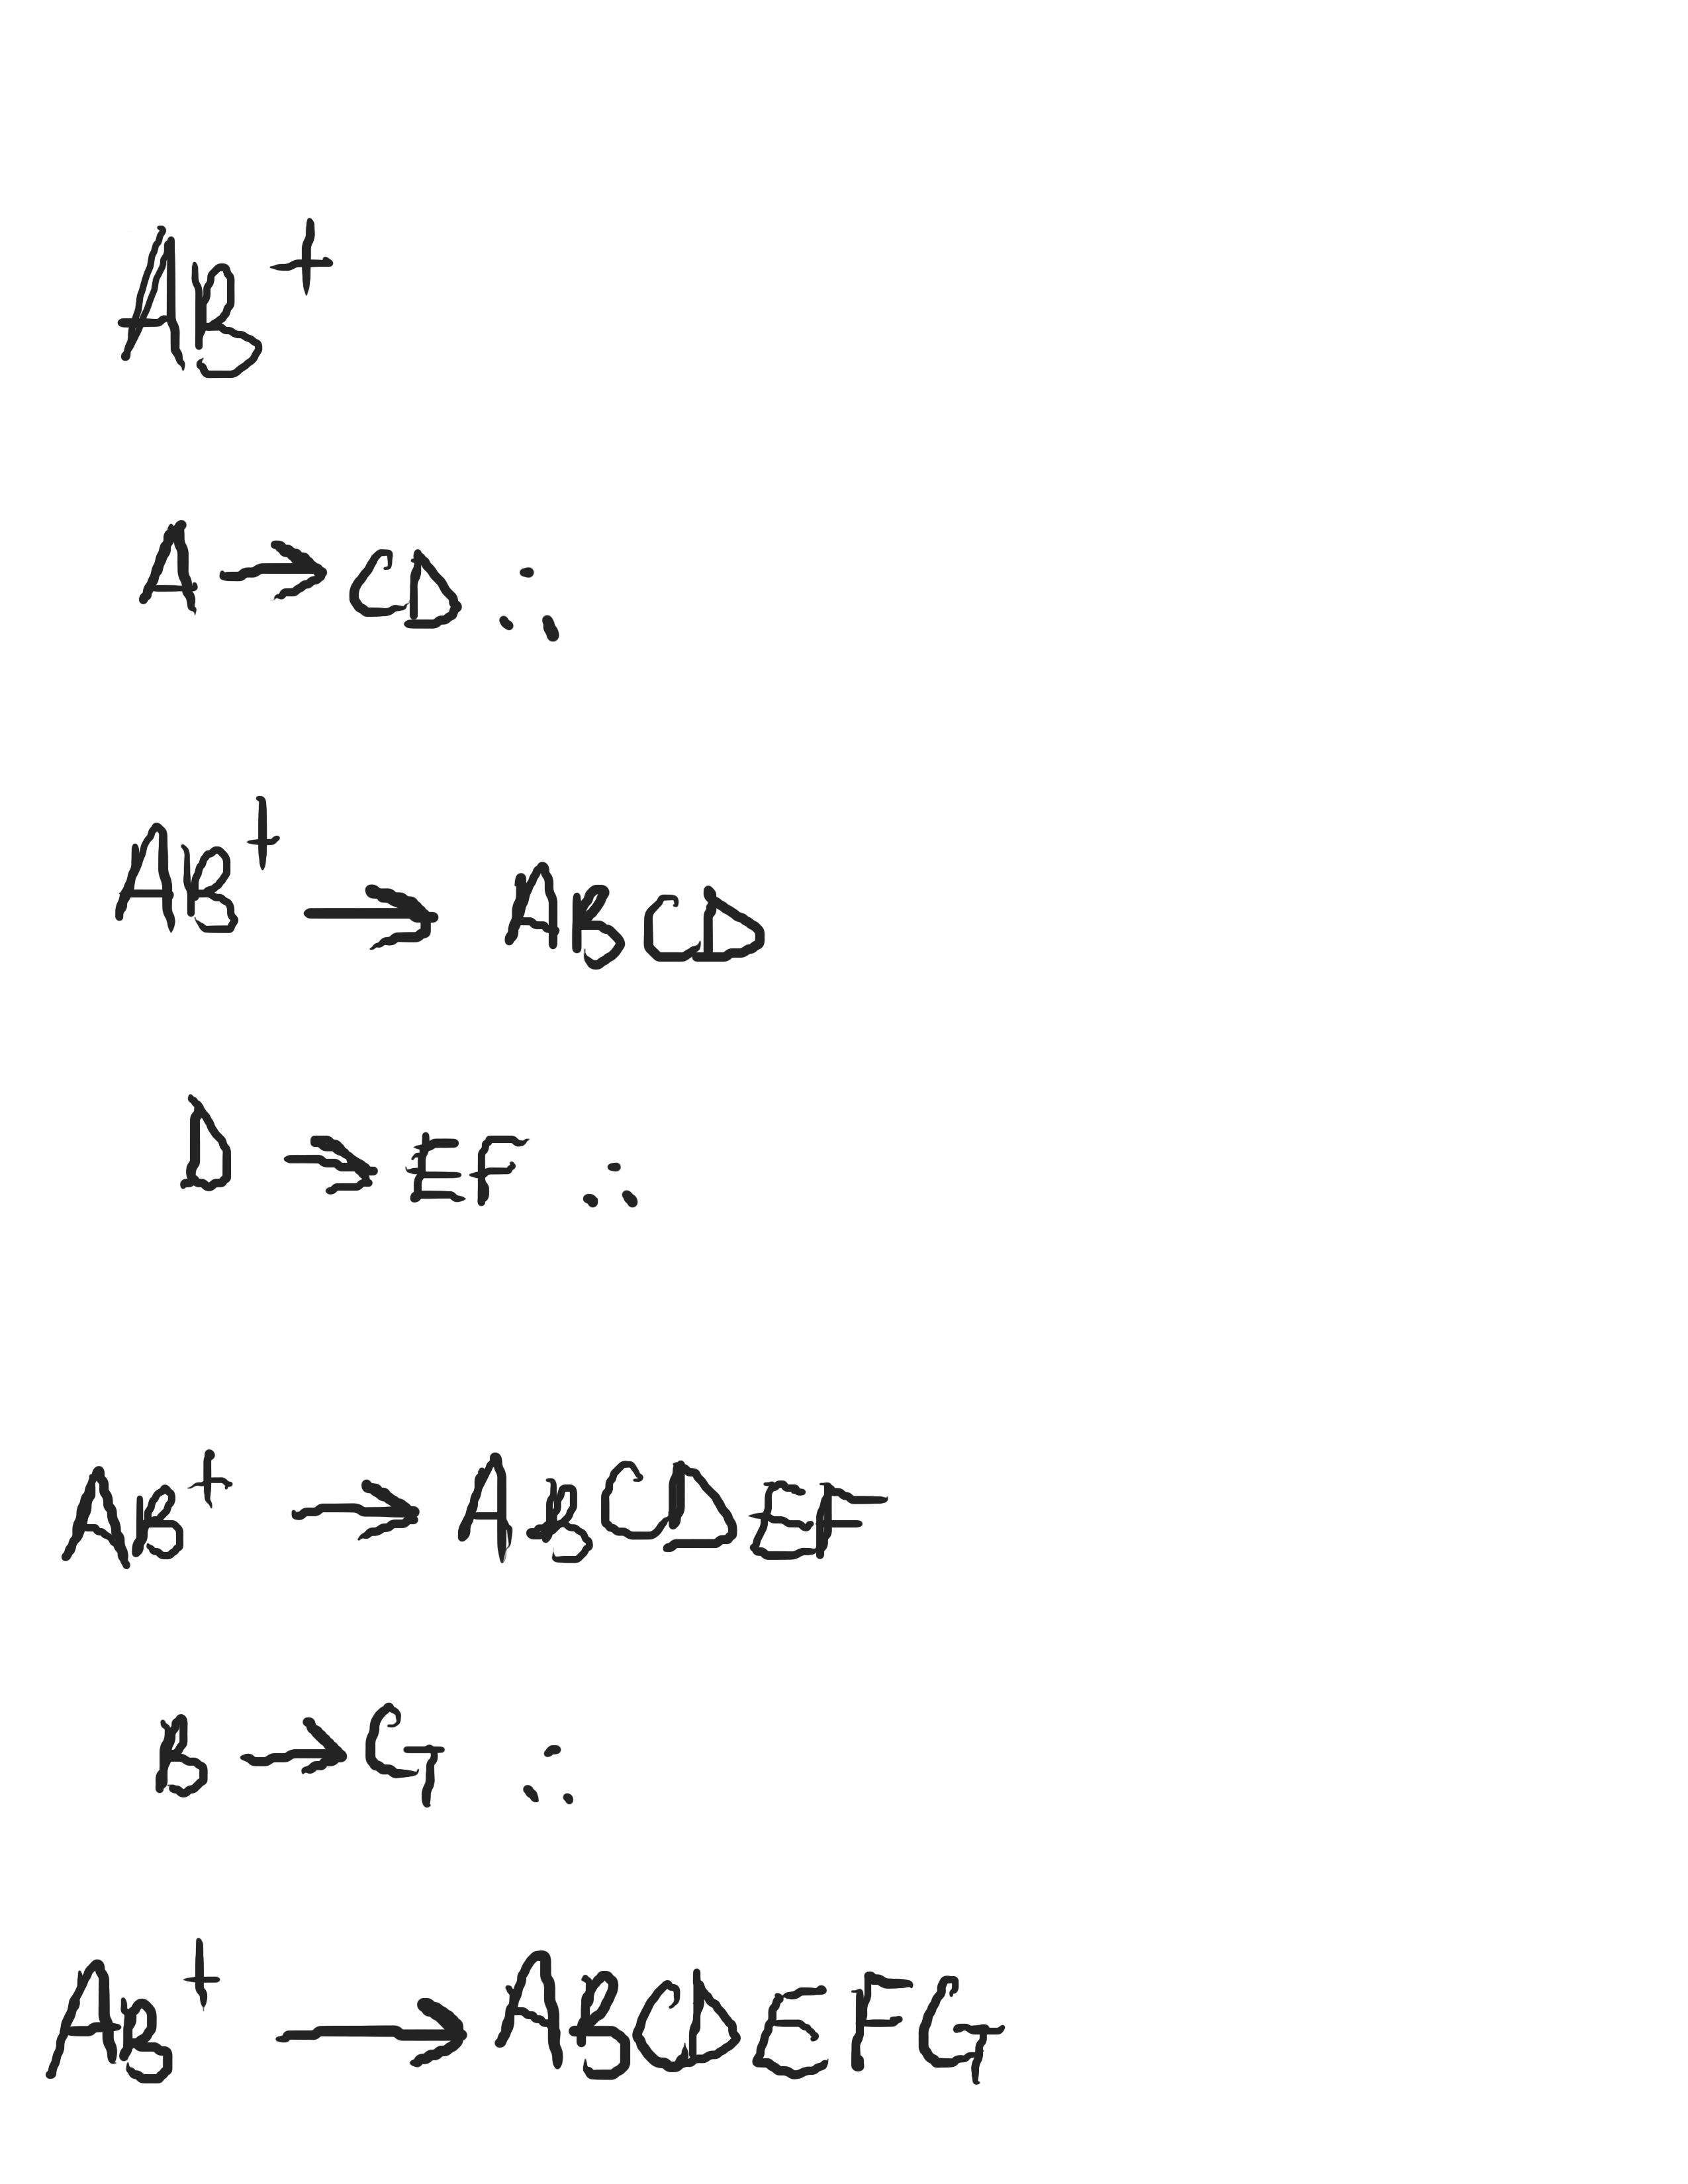 AB⁺
A → CD ∴
AB⁺ → ABCD
D → EF ∴
AB⁺ → ABCDEF
B → G ∴
AB⁺ → ABCDEFG